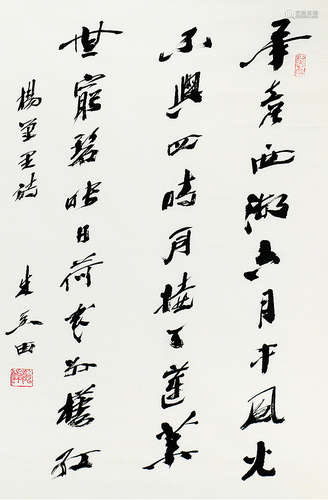 畢竟西湖六月中風光
不與四時同接天蓮葉
無窮碧映日荷花別樣紅
楊萬里詩
朱关田